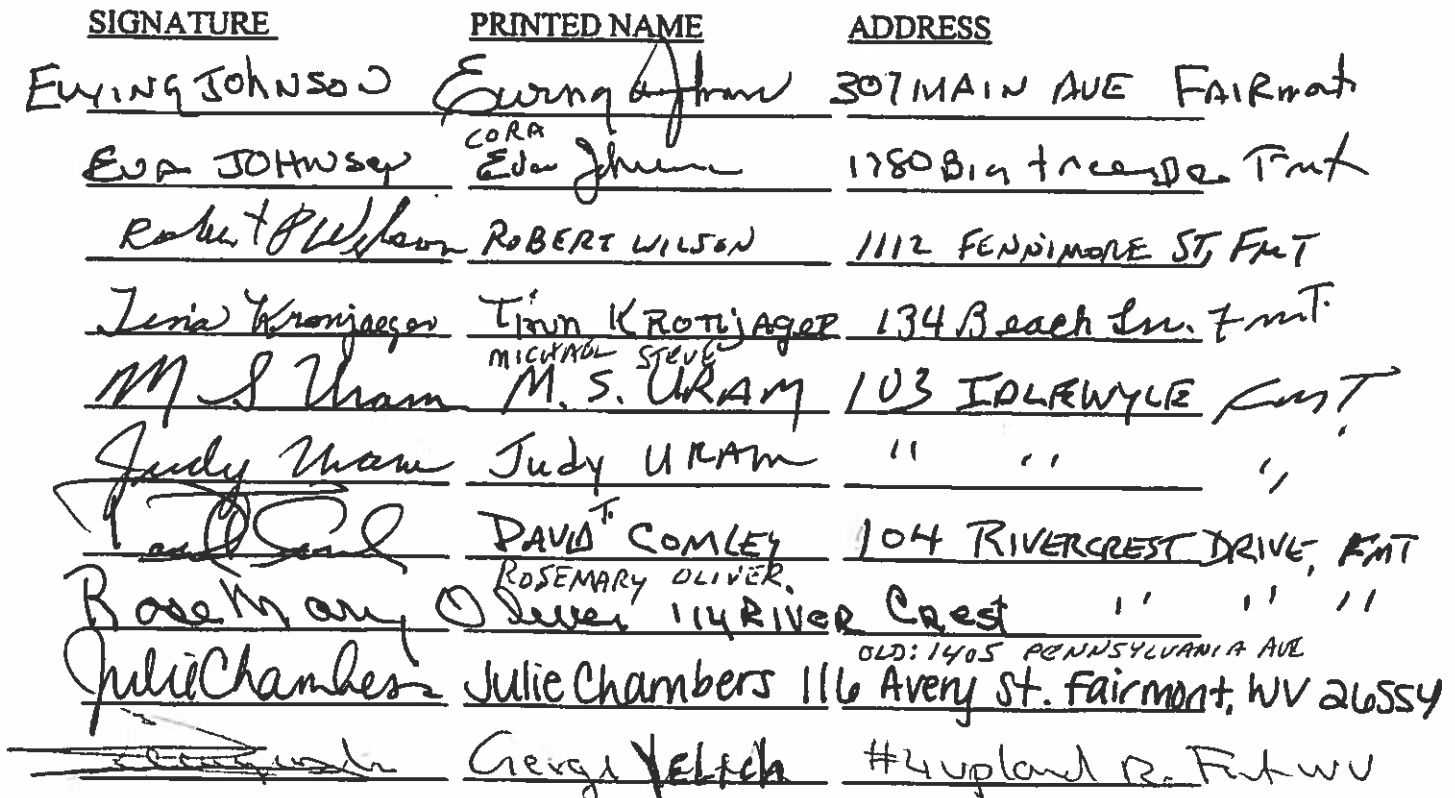 SIGNATURE PRINTED NAME ADDRESS
EWING JOHNSON Ewing Johnson 307 MAIN AVE FAIRmont
CORA
EVA JOHNSON Eva Johnson 1780 Big tree Dr. Fmt
Robert P Wilson ROBERT WILSON 1112 FENNIMORE ST, FMT
Tina Kronjaeger Tina KRONjAgeR 134 Beach Ln. FmT.
MICHAEL STEVE
M S Uram M. S. URAM 103 IDLEWYLE FMT.
Judy Uram Judy URAM " " "
DAVID T. COMLEY 104 RIVERCREST DRIVE, FMT
ROSEMARY OLIVER
RoseMary Oliver 114 RIVER CResT " " "
OLD: 1405 PENNSYLVANIA AVE
Julie Chambers Julie Chambers 116 Avery St. Fairmont, WV 26554
YELICH #4 upland WV